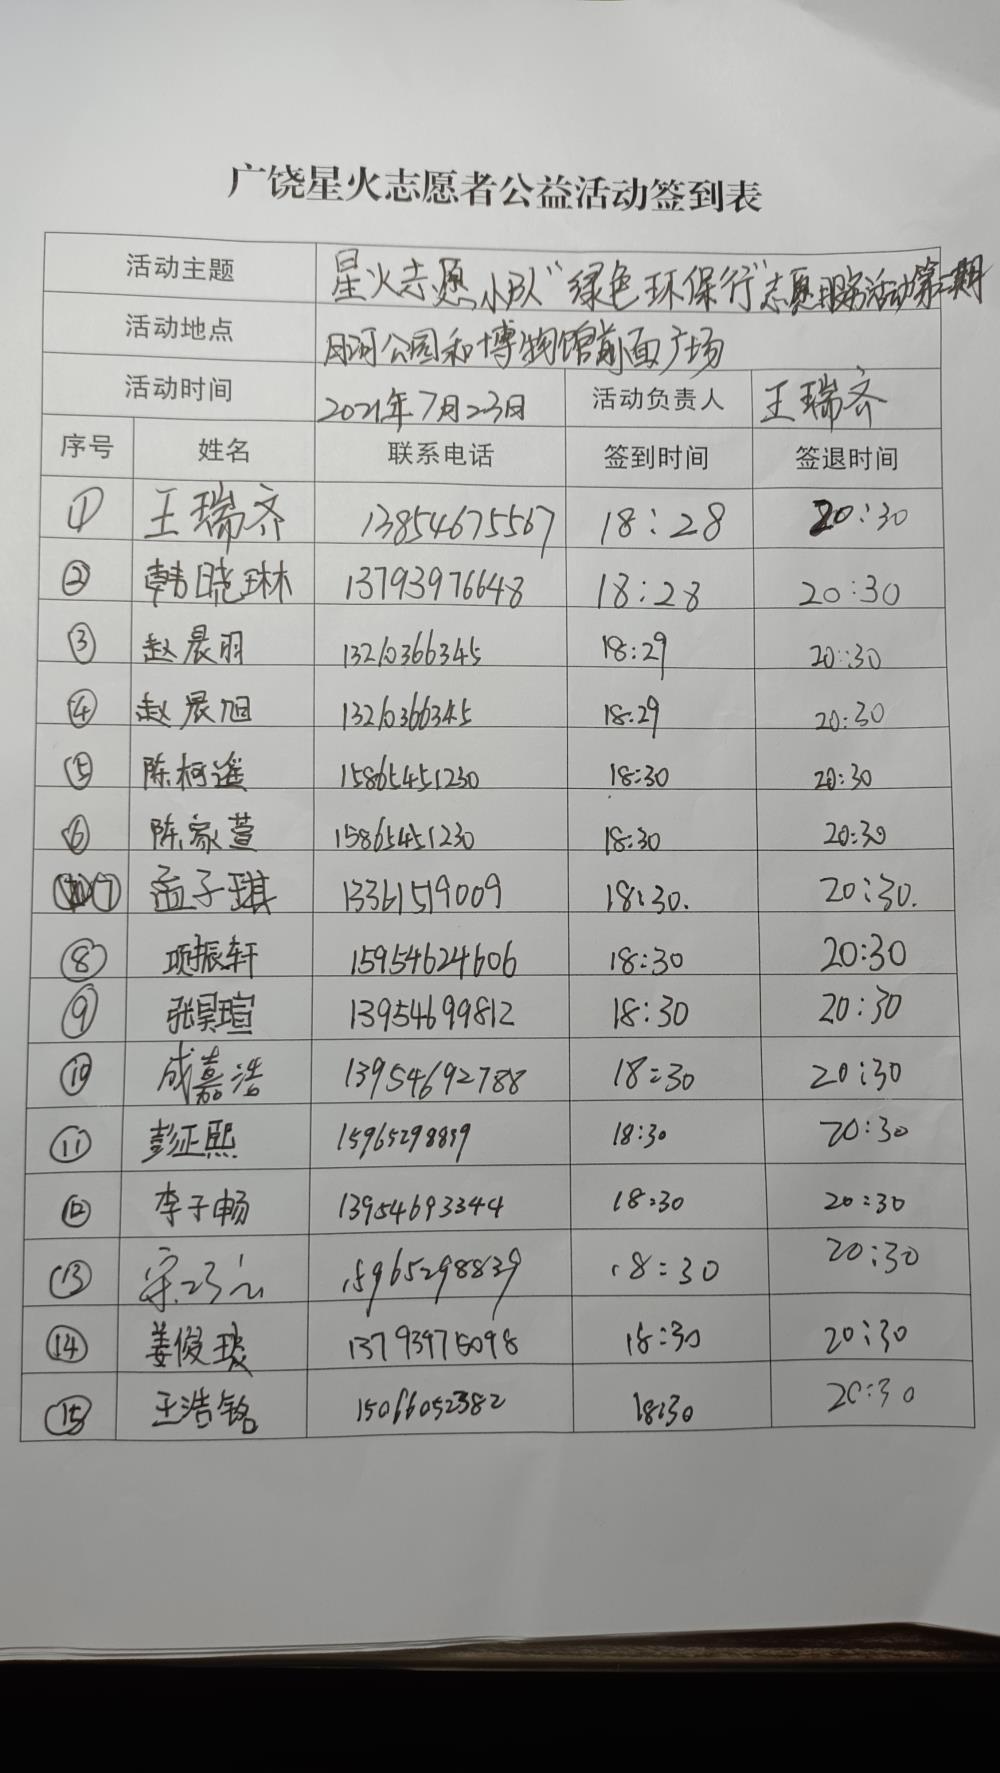 广饶星火志愿者公益活动签到表
活动主题 星火志愿小队"绿色环保行"志愿服务活动第二期
活动地点 月河公园和博物馆前面广场
活动时间 2021年7月23日 活动负责人 王瑞齐
序号 姓名 联系电话 签到时间 签退时间
① 王瑞齐 13854675567 18:28 20:30
② 韩晓琳 13793976648 18:28 20:30
③ 赵晨羽 13210366345 18:29 20:30
④ 赵晨旭 13210366345 18:29 20:30
⑤ 陈柯遥 15865451230 18:30 20:30
⑥ 陈家萱 15865451230 18:30 20:30
⑦ 孟子琪 13361519009 18:30. 20:30.
⑧ 项振轩 15954624606 18:30 20:30
⑨ 张昊瑄 13954699812 18:30 20:30
⑩ 成嘉浩 13954692788 18:30 20:30
⑪ 彭证熙 15965298859 18:30 20:30
⑫ 李子畅 13954693344 18:30 20:30
⑬ 宋 15965298839 18:30 20:30
⑭ 姜俊琰 13793975098 18:30 20:30
⑮ 王浩铭 15066052382 18:30 20:30